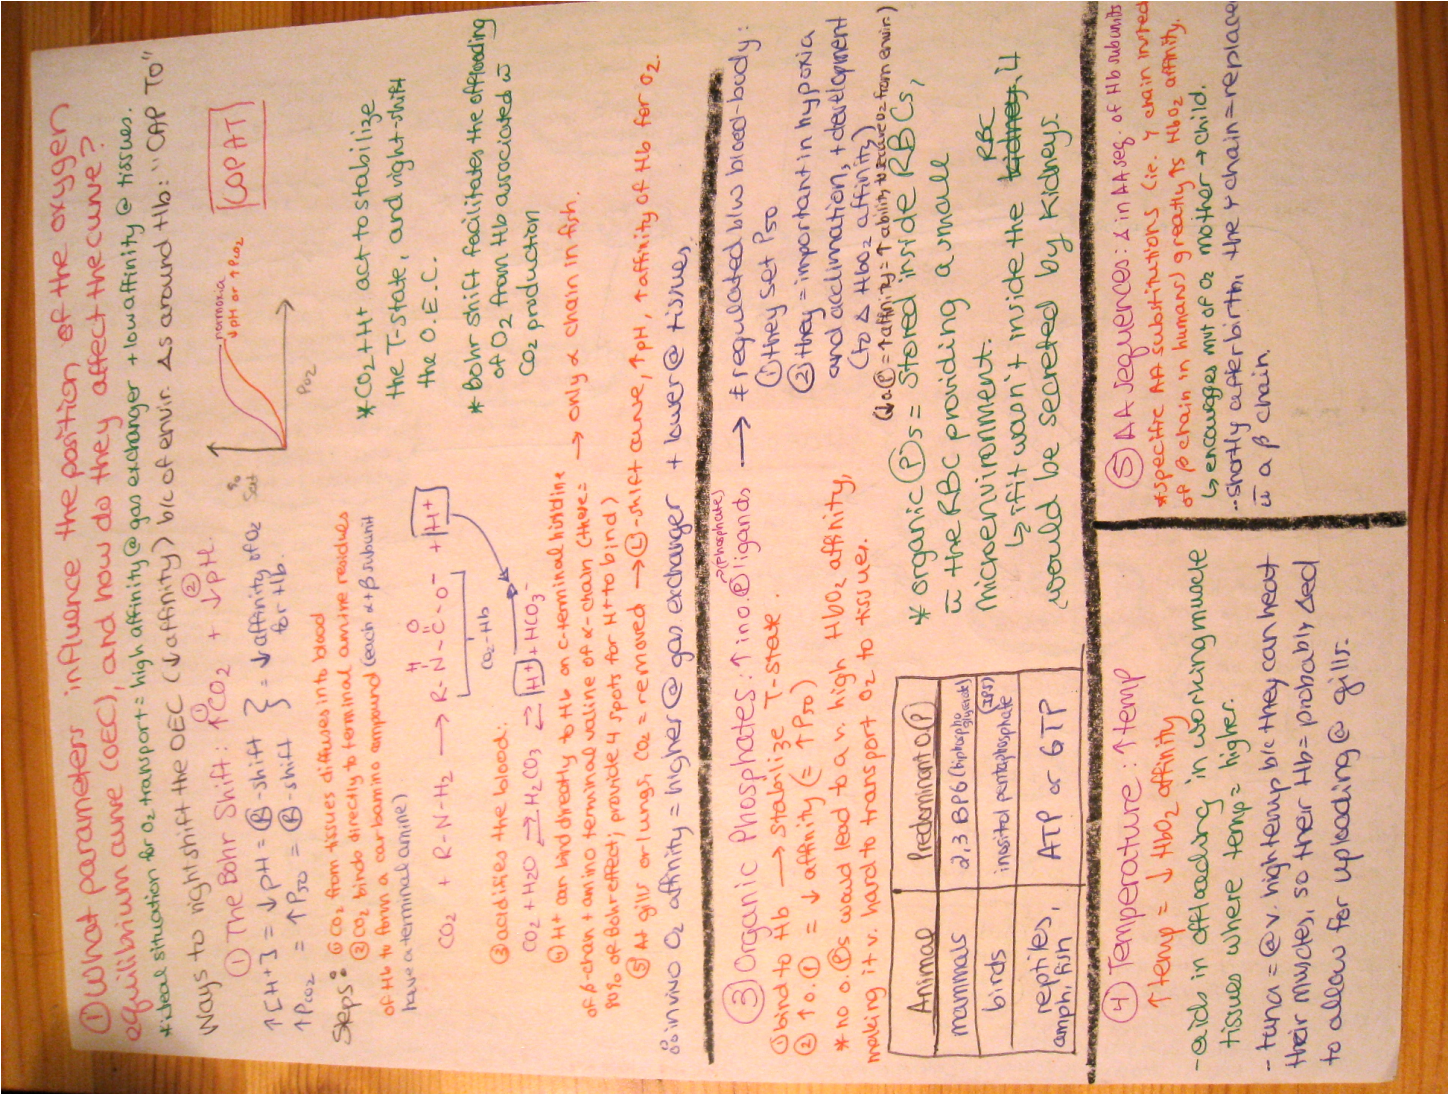 ① What parameters influence the position of the oxygen
equilibrium curve (OEC), and how do they affect the curve?
*ideal situation for O₂ transport = high affinity @ gas exchanger + low affinity @ tissues.
Ways to right shift the OEC (↓ affinity) b/c of envir. Δs around Hb: "CAP TO"
① The Bohr Shift: ↑CO₂ + ② ↓pH.
↑[H+] = ↓pH = Ⓡ-shift } = ↓ affinity of O₂
↑PCO₂ = ↑P50 = Ⓡ-shift for Hb.
% Sat
normoxia
↓pH or ↑PCO₂
PO₂
COPAT
Steps: ① CO₂ from tissues diffuses into blood
② CO₂ binds directly to terminal amine residues
of Hb to form a carbamino compound (each α+β subunit
have a terminal amine)
CO₂ + R-N-H₂ → R-N-C-O⁻ + H+
H O
CO₂-Hb
③ acidifies the blood:
CO₂ + H₂O ⇌ H₂CO₃ ⇌ H+ + HCO₃⁻
④ H+ can bind directly to Hb on c-terminal histidine
of β-chain + amino terminal valine of α-chain (these =
90% of Bohr effect; provide 4 spots for H+ to bind)
→ only α chain in fish.
⑤ At gills or lungs, CO₂ = removed → Ⓛ-shift curve, ↑pH, ↑affinity of Hb for O₂.
∴ in vivo O₂ affinity = higher @ gas exchanger + lower @ tissues.
*CO₂+H+ act to stabilize
the T-state, and right-shift
the O.E.C.
*Bohr shift facilitates the offloading
of O₂ from Hb associated w̄
CO₂ production
③ Organic Phosphates: ↑ino. Ⓟ ligands
→(Phosphate)
① bind to Hb → stabilize T-state.
② ↑o.Ⓟ = ↓ affinity (= ↑P50)
* no o.Ⓟs would lead to a v. high HbO₂ affinity,
making it v. hard to transport O₂ to tissues.
Animal Predominant O.Ⓟ
mammals 2,3 BPG (biphosphoglycerate)
birds inositol pentaphosphate (IP5)
reptiles, amphi, fish ATP or GTP
→ * regulated b/w blood-body:
① they set P50
② they = important in hypoxia
and acclimation, + development
(to Δ HbO₂ affinity)
(↓o.Ⓟ = ↑affinity = ↑ability to secure O₂ from envir.)
* organic Ⓟs = stored inside RBCs,
w̄ the RBC providing a small
microenvironment.
↳ if it wasn't inside the kidney, it
RBC
would be secreted by kidneys.
④ Temperature: ↑temp
↑temp = ↓ HbO₂ affinity
- aids in offloading in working muscle
tissues where temp = higher.
- tuna = @ v. high temp b/c they can heat
their muscles, so their Hb = probably Δed
to allow for uploading @ gills.
⑤ AA sequences: Δ in AA seq. of Hb subunits
*specific AA substitutions (ie. γ chain insted
of β chain in humans) greatly ↑s HbO₂ affinity.
↳ encourages mvt of O₂ mother → child.
- shortly after birth, the γ chain = replaced
w̄ a β chain.